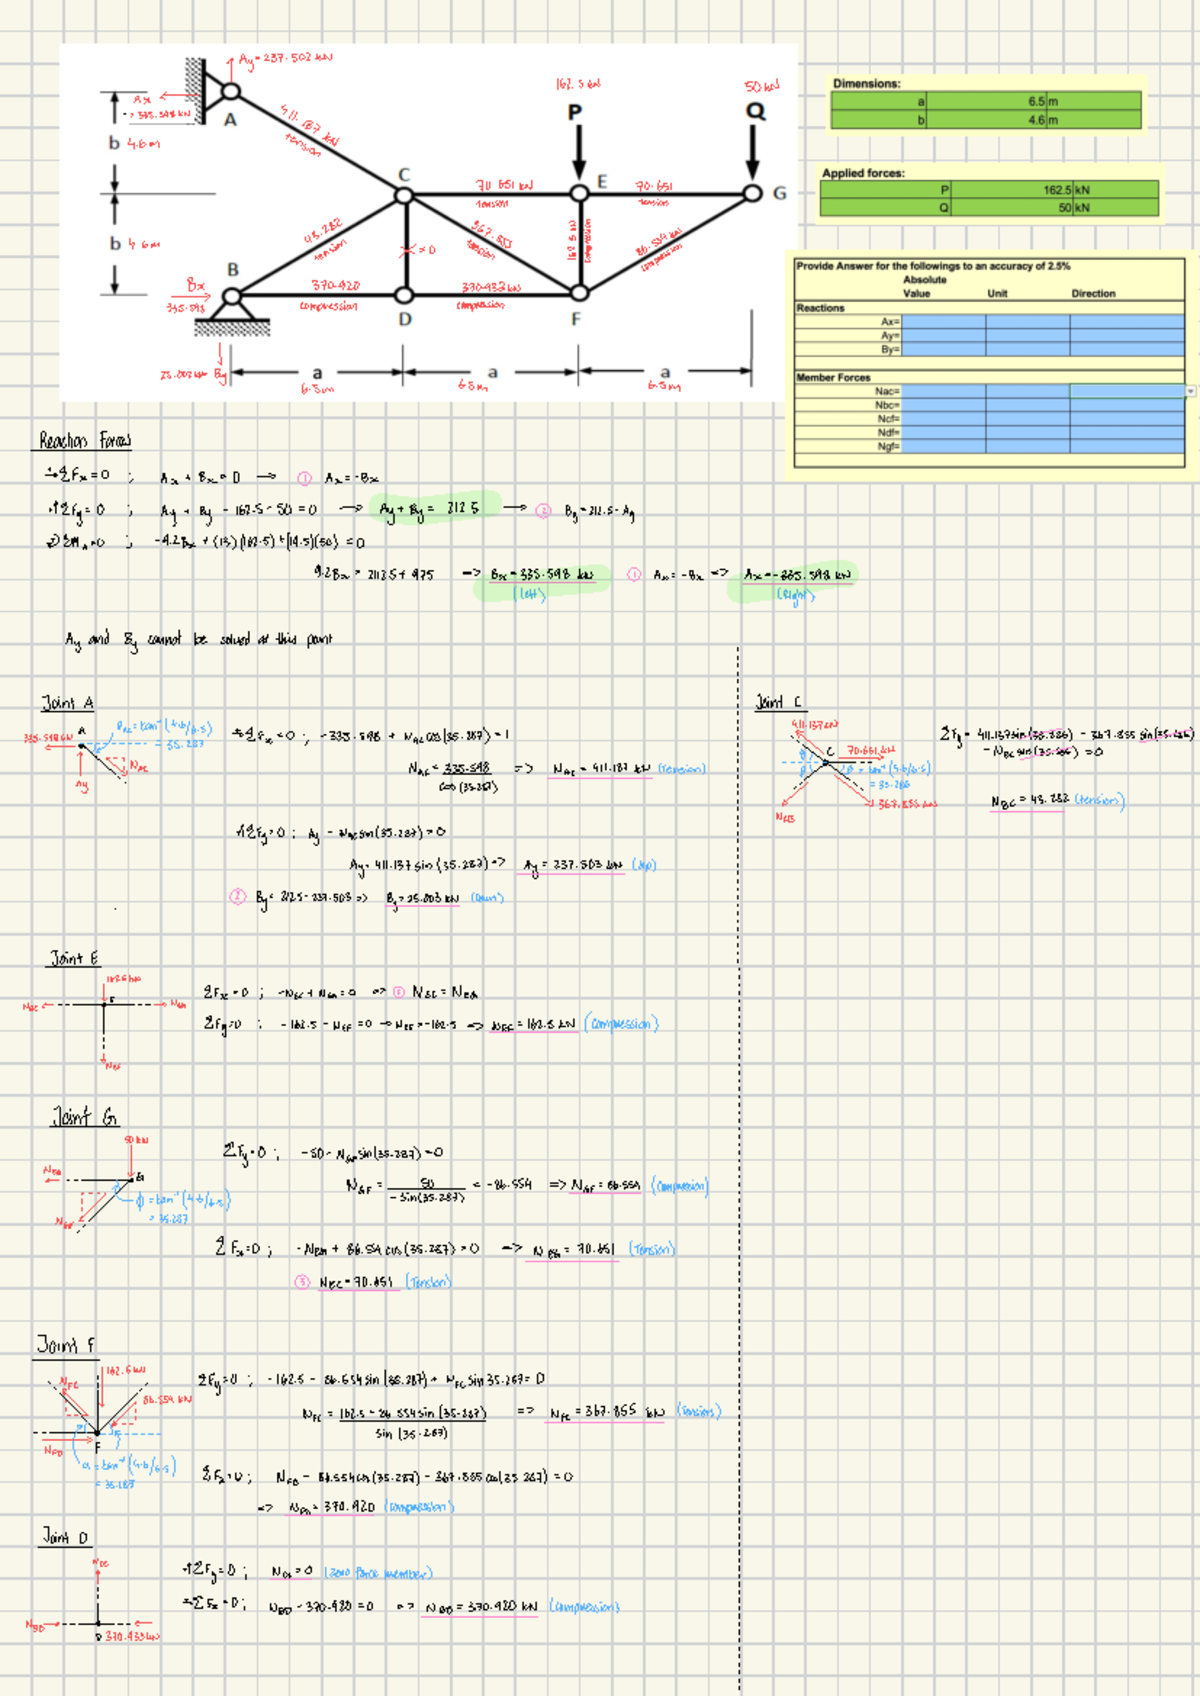 Ay = 237.502 kN
162.5 kN
50 kN
Dimensions:
a 6.5 m
b 4.6 m
Ax
= 335.598 kN
A
P
Q
b 4.6m
411.187 kN
tension
Applied forces:
P 162.5 kN
Q 50 kN
C
711 651 kN
tension
E
70.651
tension
G
b 4.6m
43.282
tension
= 0
367.855
tension
162.5 kN
compression
86.554 kN
compression
B
Bx
335.598
370.920
compression
370.932 kN
compression
D
F
25.003 kN By
a
6.5m
a
6.5m
a
6.5m
Provide Answer for the followings to an accuracy of 2.5%
Absolute
Value Unit Direction
Reactions
Ax=
Ay=
By=
Member Forces
Nac=
Nbc=
Ncf=
Ndf=
Ngf=
Reaction Forces
→ΣFx = 0 ; Ax + Bx = 0 → ① Ax = -Bx
+↑ΣFy = 0 ; Ay + By - 162.5 - 50 = 0 → Ay + By = 212.5 → ② By = 212.5 - Ay
ΣMA = 0 ; -9.2Bx + (13)(162.5) + (19.5)(50) = 0
9.2Bx = 2112.5 + 975 => Bx = 335.598 kN ① Ax = -Bx => Ax = -335.598 kN
(left) (Right)
Ay and By cannot be solved at this point
Joint A
A
335.598 kN
θAC = tan⁻¹(4.6/6.5)
= 35.287
NAC
Ay
→ΣFx = 0 ; -335.598 + NAC cos(35.287) = 1
NAC = 335.598 / cos(35.287) => NAC = 411.187 kN (Tension)
+↑ΣFy = 0 ; Ay - NAC sin(35.287) = 0
Ay = 411.137 sin(35.287) => Ay = 237.503 kN (Up)
② By = 212.5 - 237.503 => By = 25.003 kN (Down)
Joint C
411.137 kN
70.651 kN
C
θ = tan⁻¹(4.6/6.5)
= 35.286
367.855 kN
NCB
ΣFy = 411.137 sin(35.286) - 367.855 sin(35.286)
- NBC sin(35.286) = 0
NBC = 43.282 (tension)
Joint E
162.5 kN
E
NEC
NEG
NEF
ΣFx = 0 ; -NEC + NEG = 0 => ③ NEC = NEG
ΣFy = 0 ; -162.5 - NEF = 0 → NEF = -162.5 => NEF = 162.5 kN (compression)
Joint G
50 kN
NEG
G
ϕ = tan⁻¹(4.6/6.5)
= 35.287
NGF
ΣFy = 0 ; -50 - NGF sin(35.287) = 0
NGF = 50 / -sin(35.287) = -86.554 => NGF = 86.554 (Compression)
ΣFx = 0 ; -NEG + 86.554 cos(35.287) = 0 => NEG = 70.651 (Tension)
③ NEC = 70.651 (Tension)
Joint F
NFC
162.5 kN
86.554 kN
NFD
F
α = tan⁻¹(4.6/6.5)
= 35.287
ΣFy = 0 ; -162.5 - 86.554 sin(35.287) + NFC sin 35.287 = 0
NFC = 162.5 - 86.554 sin(35.287) / sin(35.287) => NFC = 367.855 kN (Tension)
ΣFx = 0 ; NFD - 86.554 cos(35.287) - 367.855 cos(35.287) = 0
=> NFD = 370.920 (compression)
Joint D
NDC
NBD
D 370.933 kN
+↑ΣFy = 0 ; NDC = 0 (zero force member)
→ΣFx = 0 ; NBD - 370.920 = 0 => NBD = 370.920 kN (compression)